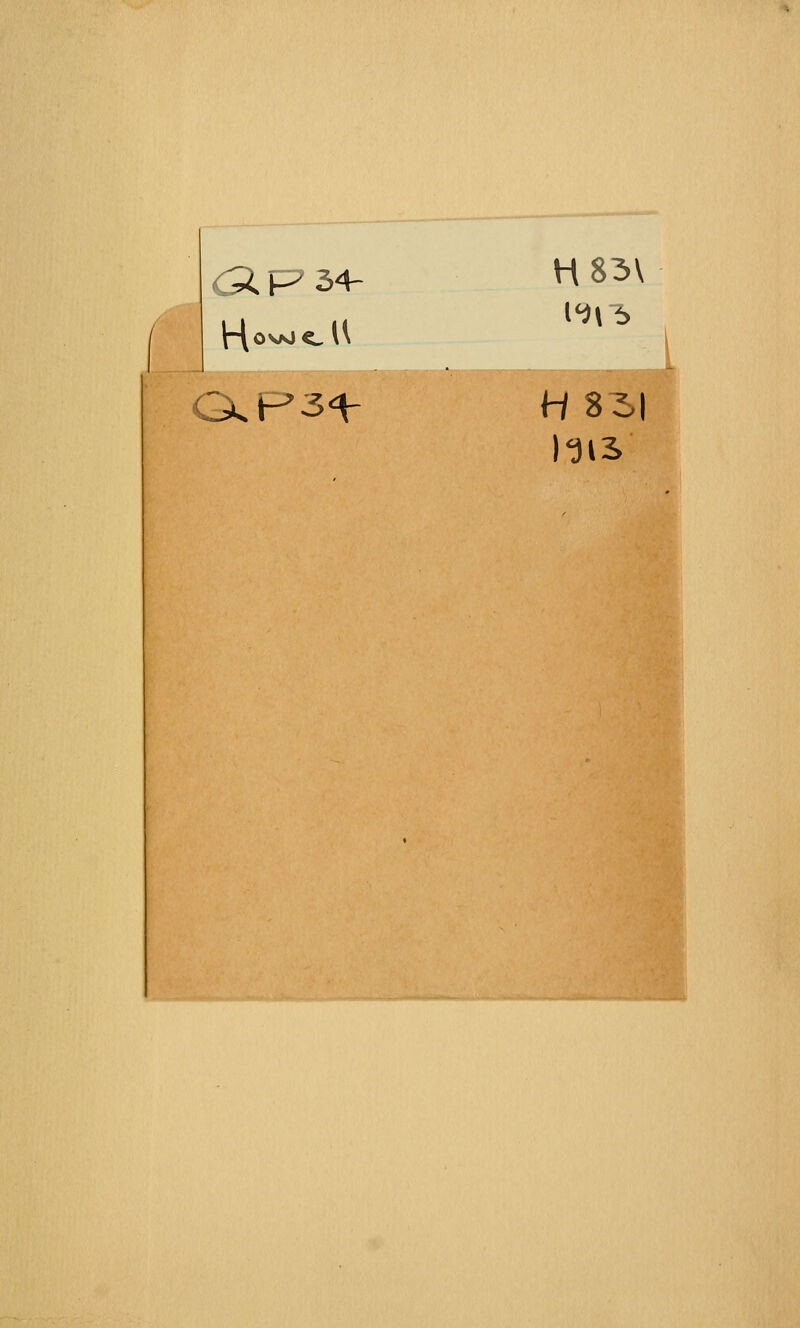 QP34 H831
Howell 1913
QP34 H831
1913